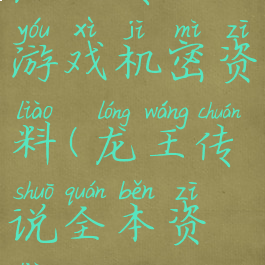 yóu xì jī mì zī
游戏机密资
liào lóng wáng chuán
料(龙王传
shuō quán běn zī
说全本资